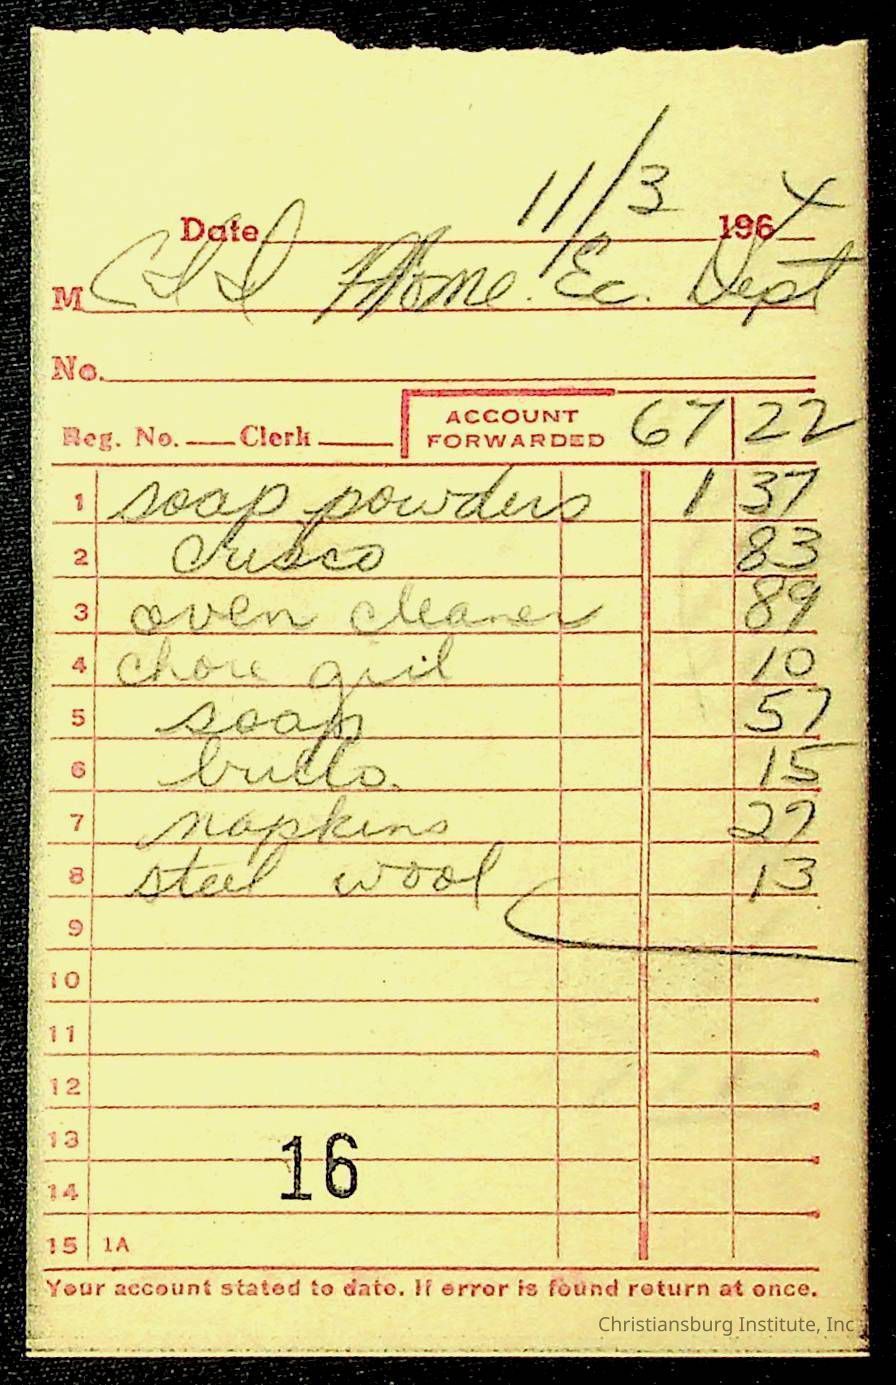 Date 11/3 1964
M C I I Home Ec. Dept
No.
Reg. No. Clerk ACCOUNT FORWARDED 67 22
1 soap powders 1 37
2 Crisco 83
3 oven cleaner 89
4 chore girl 10
5 soap 57
6 brillo. 15
7 napkins 29
8 steel wool 13
9
10
11
12
13
16
14
15 1A
Your account stated to date. If error is found return at once.
Christiansburg Institute, Inc